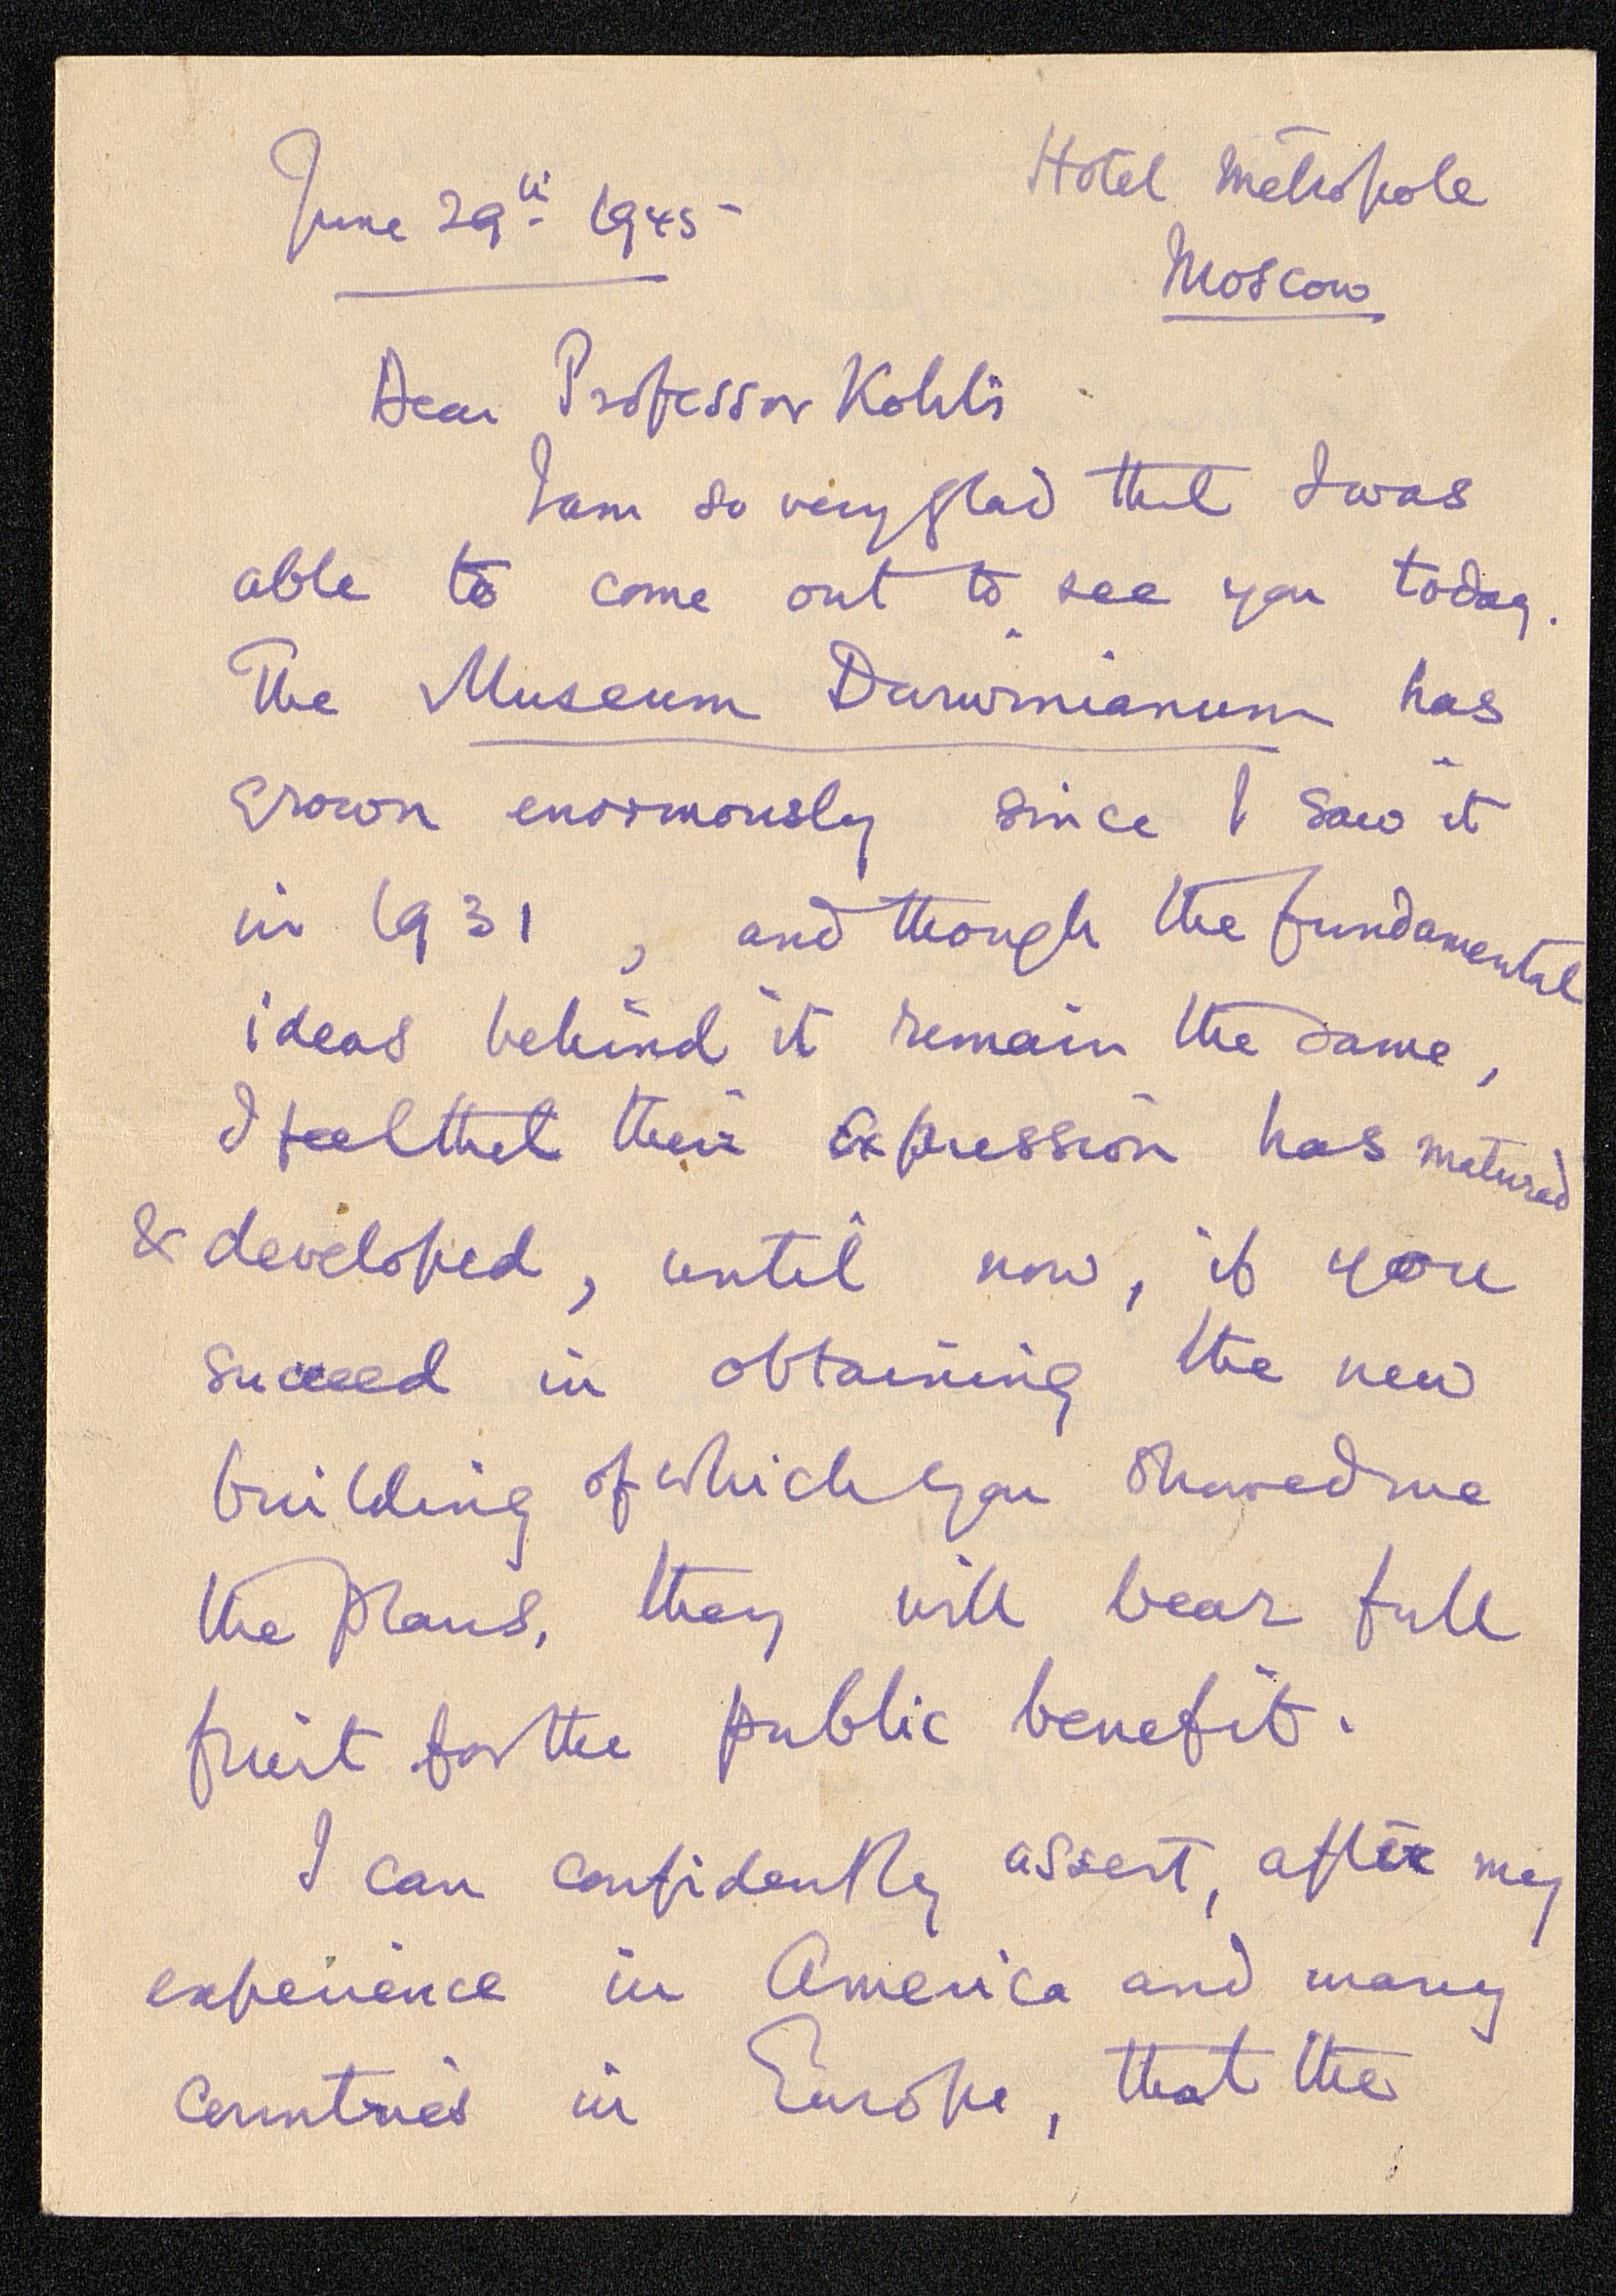 June 29th 1945
Hotel Métropole
Moscow
Dear Professor Kohts
I am so very glad that I was
able to come out to see you today.
The Museum Darwinianum has
grown enormously since I saw it
in 1931, and though the fundamental
ideas behind it remain the same,
I feel that their expression has matured
& developed, until now, if you
succeed in obtaining the new
building of which you showed me
the plans, they will bear full
fruit for the public benefit.
I can confidently assert, after my
experience in America and many
countries in Europe, that the